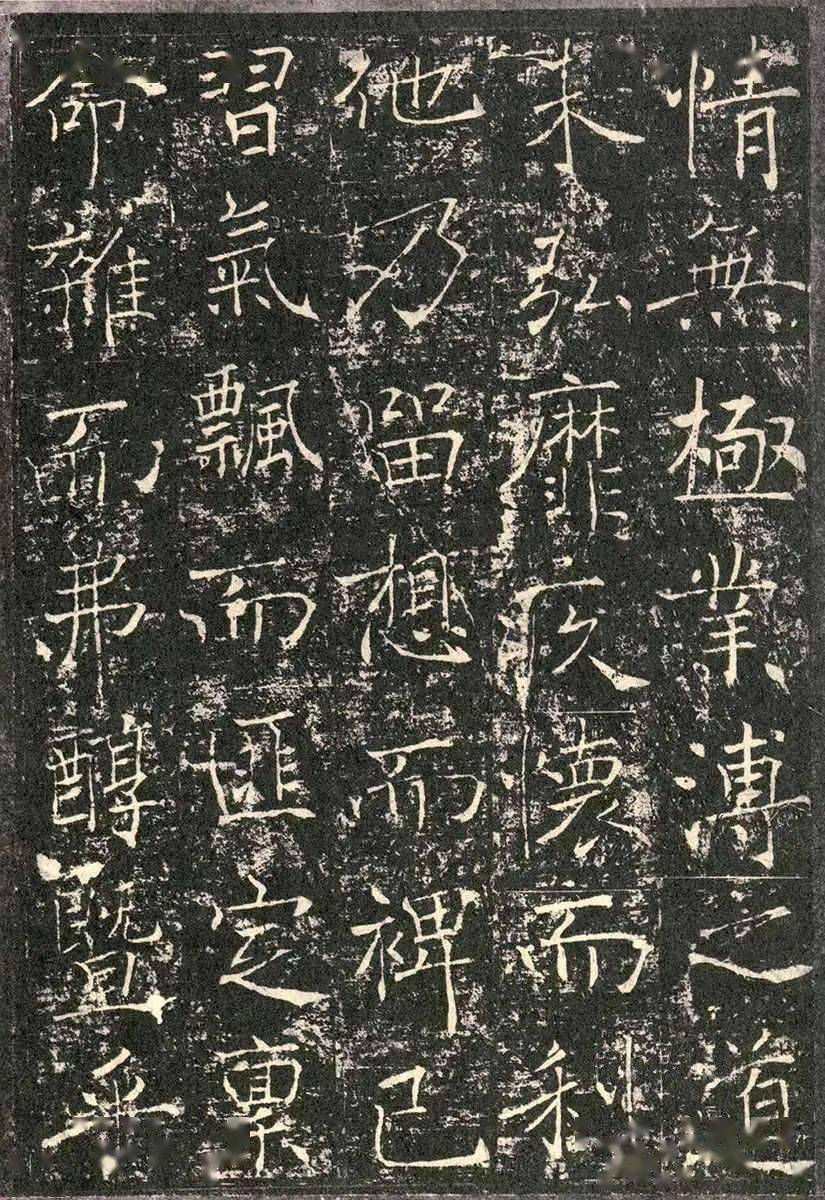 情無極業溥之道
未弘靡疚懷而利
他乃留想而裨已
習氣飄而匪定稟
命雜而弗醇暨乎